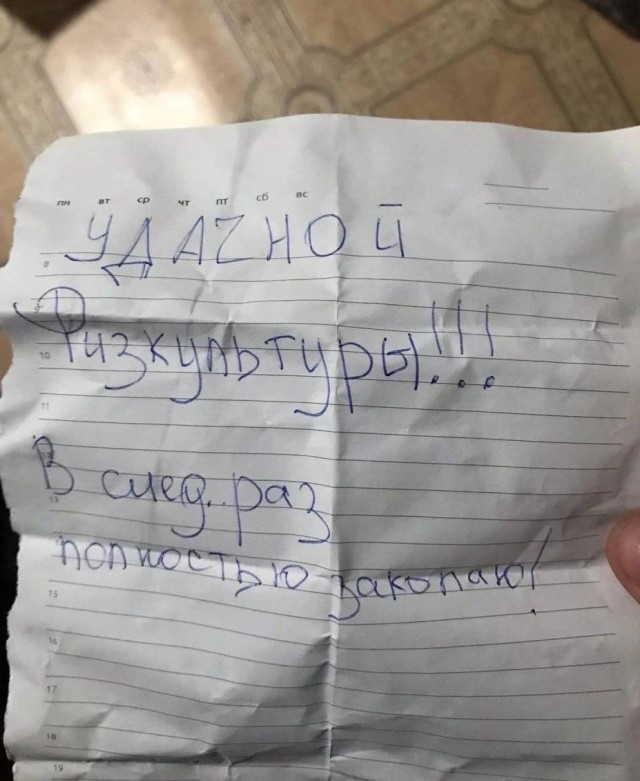 пн вт ср чт пт сб вс
УДАЧНОЙ
8
9
Физкультуры!!!
10
11
В след. раз
13
полностью закопаю!
15
16
17
18
19